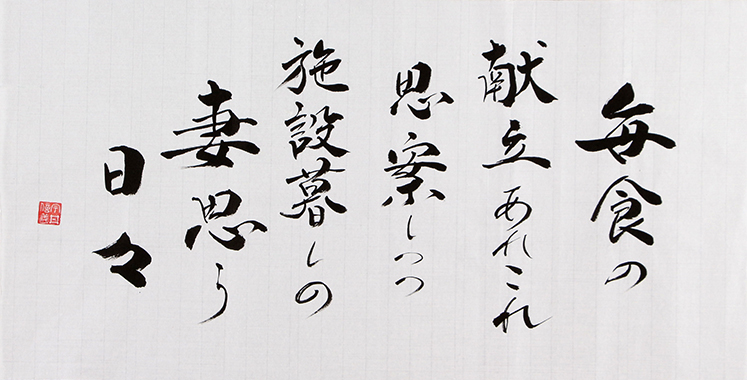 毎食の
献立あれこれ
思案しつつ
施設暮しの
妻思う
日々